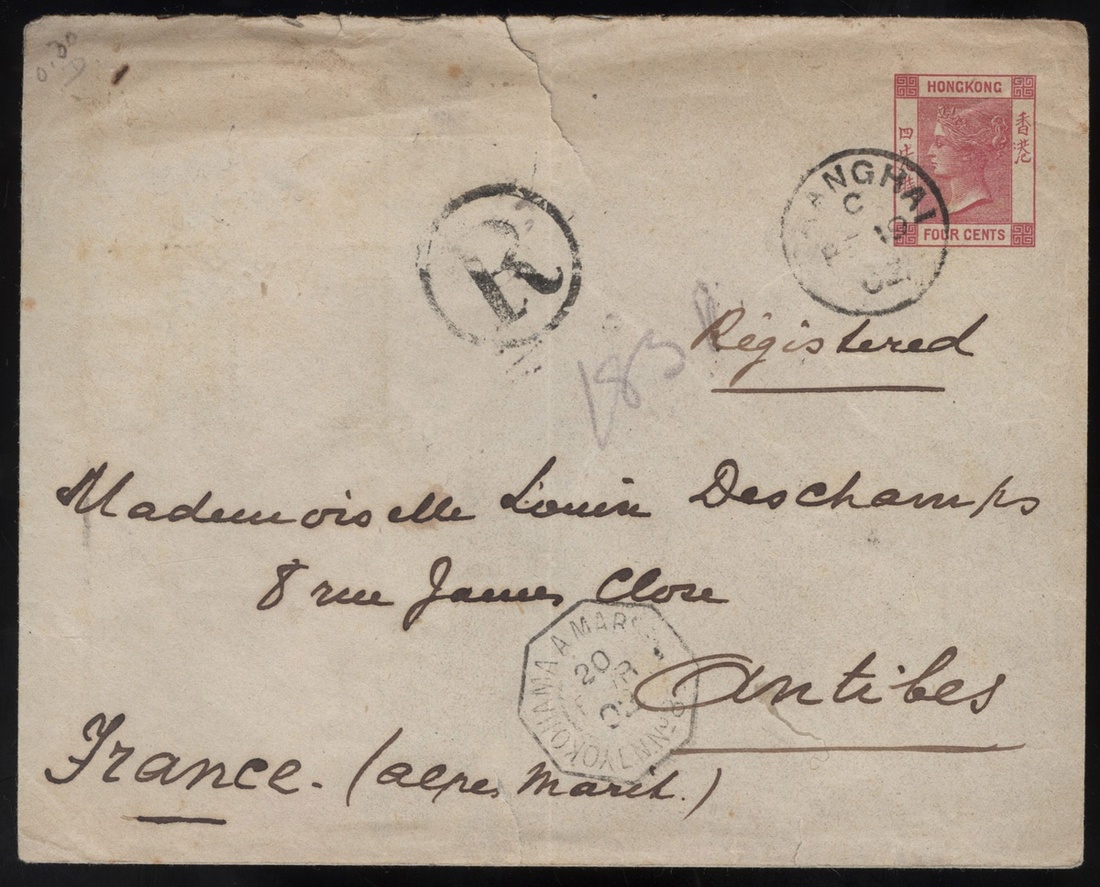 0.30
HONGKONG
香港
四
FOUR CENTS
SHANGHAI
C
19
02
R
Registered
183
Mademoiselle Louise Deschamps
8 rue James Close
Antibes
France. (Alpes Marit.)
YOKOHAMA A MARS
LN No 8
20
02